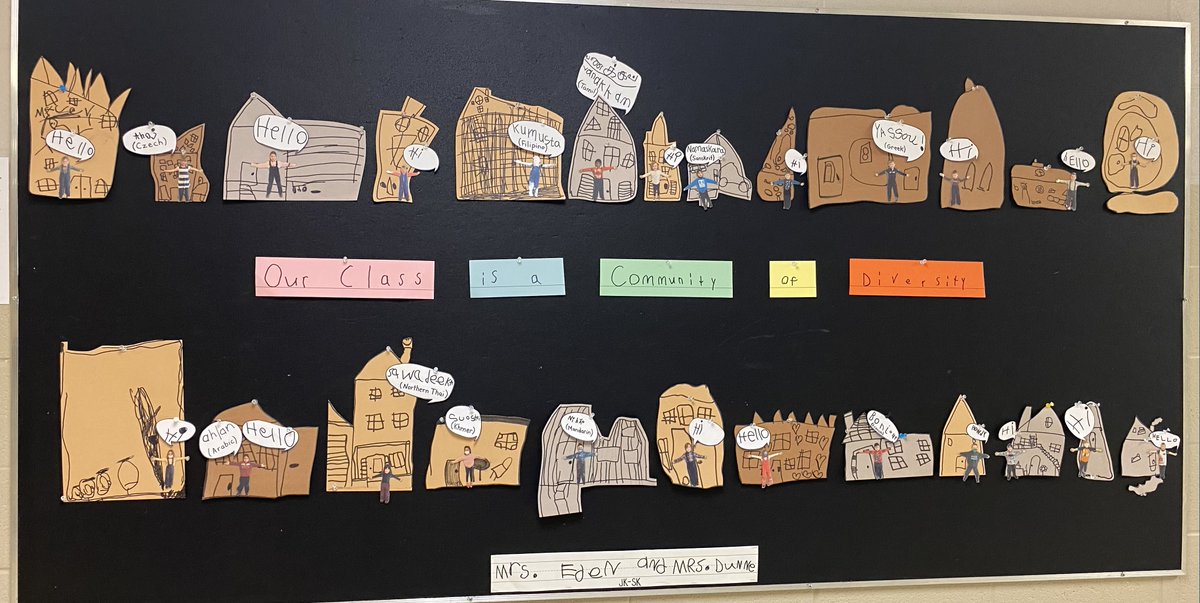 Hello
Ahoj
(Czech)
Hello
Hi
Kumusta
(Filipino)
(Tamil)
Hi
Namaskara
(Sanskrit)
Hi
Yassou!
(Greek)
Hi
Hi
Our Class is a Community of Diversity
Hi
ahlan
(Arabic)
Hello
sawadeeka
(Northern Thai)
(Khmer)
(Mandarin)
Hi
Hello
Hi
Hi
HELLO
Mrs. Eden and MRS. Dunne
JK-SK